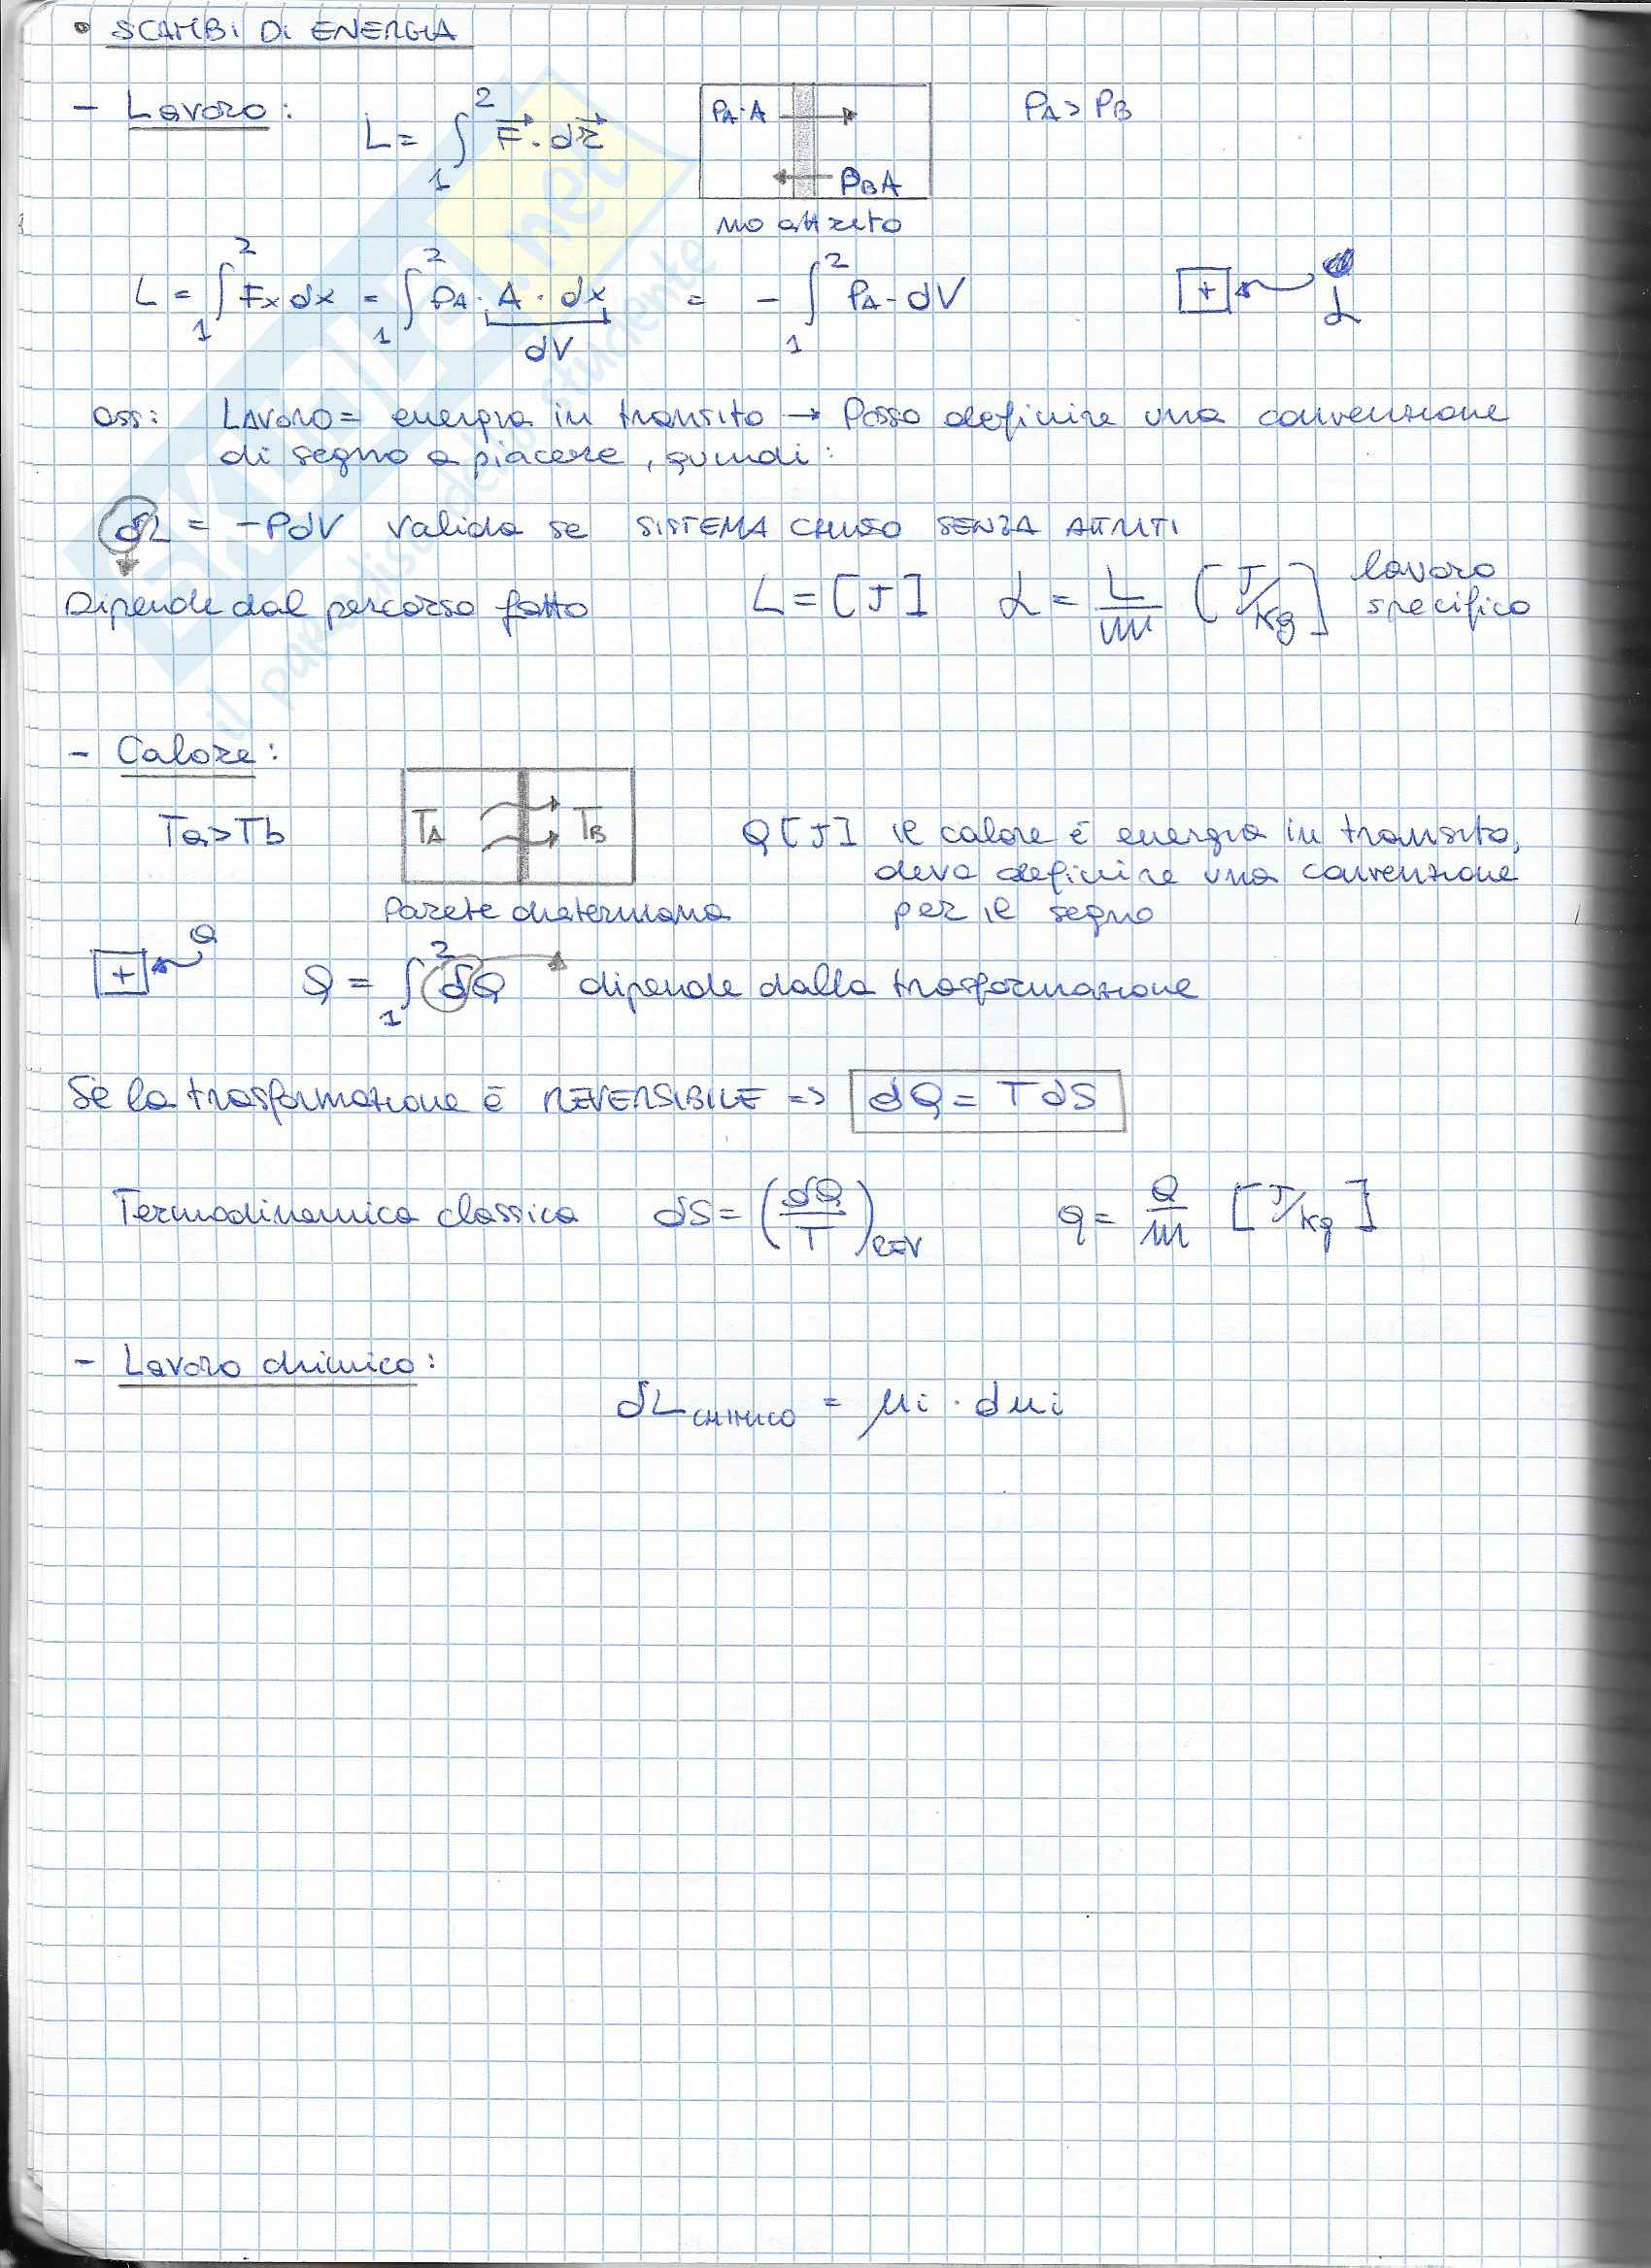 • SCAMBI DI ENERGIA
- Lavoro: L = ∫₁² F⃗ · dr⃗
PA·A PA > PB
PBA
no attrito
L = ∫₁² Fx dx = ∫₁² PA · A · dx = - ∫₁² PA · dV + L
dV
oss: LAVORO = energia in transito → Posso definire una convenzione
di segno a piacere, quindi:
δL = -PdV valida se SISTEMA CHIUSO SENZA ATTRITI
Dipende dal percorso fatto L = [J] L = L/m [J/kg] lavoro specifico
- Calore:
Ta > Tb TA TB Q [J] il calore è energia in transito,
devo definire una convenzione
parete diatermana per il segno
+ Q Q = ∫₁² δQ dipende dalla trasformazione
Se la trasformazione è REVERSIBILE => δQ = T dS
Termodinamica classica dS = (δQ/T)REV q = Q/m [J/kg]
- Lavoro chimico:
δL CHIMICO = μi · dni
SKUOLA.net
il paradiso dello studente